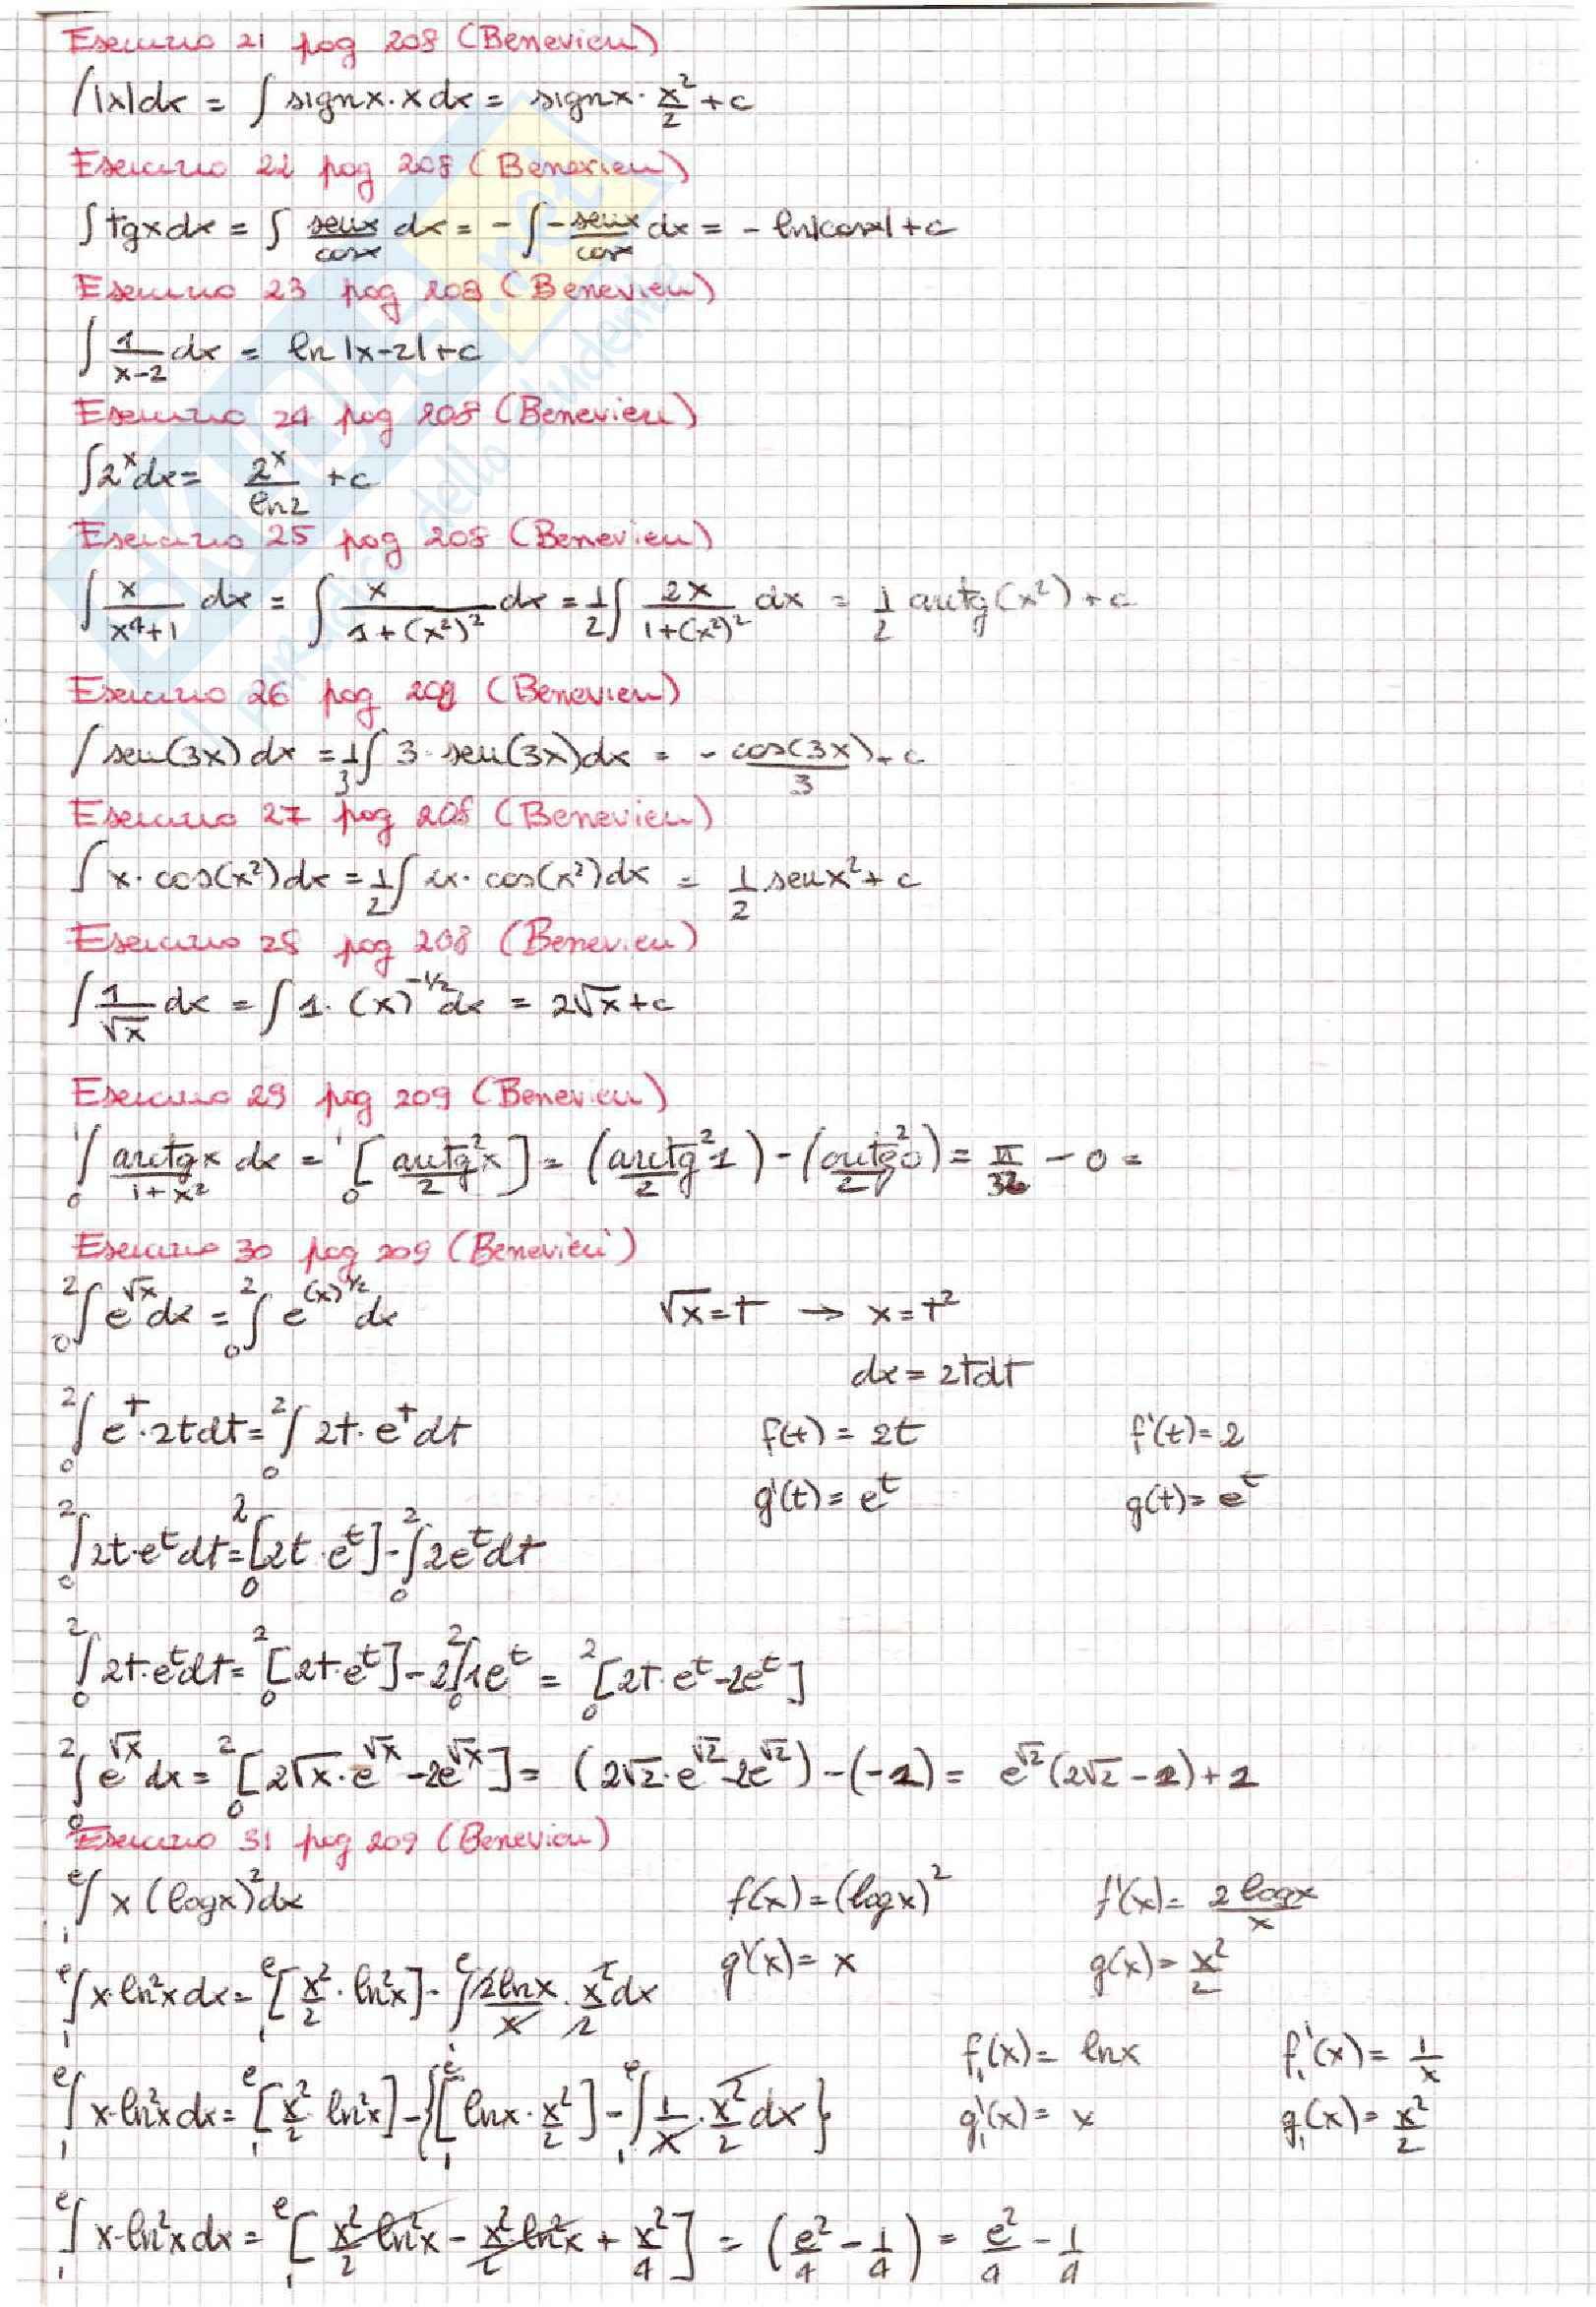 Esercizio 21 pag 208 (Benevieri)
∫|x|dx = ∫ signx·x dx = signx·x²/2 + c
Esercizio 22 pag 208 (Benevieri)
∫tgxdx = ∫ senx/cosx dx = -∫-senx/cosx dx = - ln|cosx|+c
Esercizio 23 pag 208 (Benevieri)
∫ 1/(x-2) dx = ln|x-2|+c
Esercizio 24 pag 208 (Benevieri)
∫2ˣdx = 2ˣ/ln2 +c
Esercizio 25 pag 208 (Benevieri)
∫ x/(x⁴+1) dx = ∫ x/(1+(x²)²) dx = 1/2 ∫ 2x/(1+(x²)²) dx = 1/2 arctg(x²)+c
Esercizio 26 pag 208 (Benevieri)
∫ sen(3x) dx = 1/3 ∫ 3·sen(3x)dx = - cos(3x)/3 + c
Esercizio 27 pag 208 (Benevieri)
∫ x·cos(x²)dx = 1/2 ∫ 2x·cos(x²)dx = 1/2 senx² + c
Esercizio 28 pag 208 (Benevieri)
∫ 1/√x dx = ∫ 1·(x)^(-1/2) dx = 2√x+c
Esercizio 29 pag 209 (Benevieri)
₀∫¹ arctgx/(1+x²) dx = ₀[arctg²x/2]¹ = (arctg²1/2) - (arctg²0/2) = π/32 - 0 =
Esercizio 30 pag 209 (Benevieri)
₀∫² e^√x dx = ₀∫² e^(x)^(1/2) dx √x = t → x = t²
dx = 2tdt
₀∫² eᵗ·2tdt = ₀∫² 2t·eᵗdt f(t) = 2t f'(t) = 2
g'(t) = eᵗ g(t) = eᵗ
₀∫² 2t·eᵗdt = ₀[2t·eᵗ]² - ₀∫² 2eᵗdt
₀∫² 2t·eᵗdt = ₀[2t·eᵗ]² - 2₀∫² 1eᵗ = ₀[2t·eᵗ-2eᵗ]²
₀∫² e^√x dx = ₀[2√x·e^√x - 2e^√x]² = (2√2·e^√2 - 2e^√2) - (-2) = e^√2(2√2-2)+2
Esercizio 31 pag 209 (Benevieri)
₁∫ᵉ x(logx)²dx f(x) = (logx)² f'(x) = 2logx/x
g'(x) = x g(x) = x²/2
₁∫ᵉ x·ln²xdx = ₁[x²/2·ln²x]ᵉ - ₁∫ᵉ 2lnx/x·x²/2 dx
f₁(x) = lnx f₁'(x) = 1/x
₁∫ᵉ x·ln²xdx = ₁[x²/2·ln²x]ᵉ - {₁[lnx·x²/2]ᵉ - ₁∫ᵉ 1/x·x²/2 dx} g₁'(x) = x g₁(x) = x²/2
₁∫ᵉ x·ln²xdx = ₁[x²/2 ln²x - x²/2 ln²x + x²/4]ᵉ = (e²/4 - 1/4) = e²/4 - 1/4